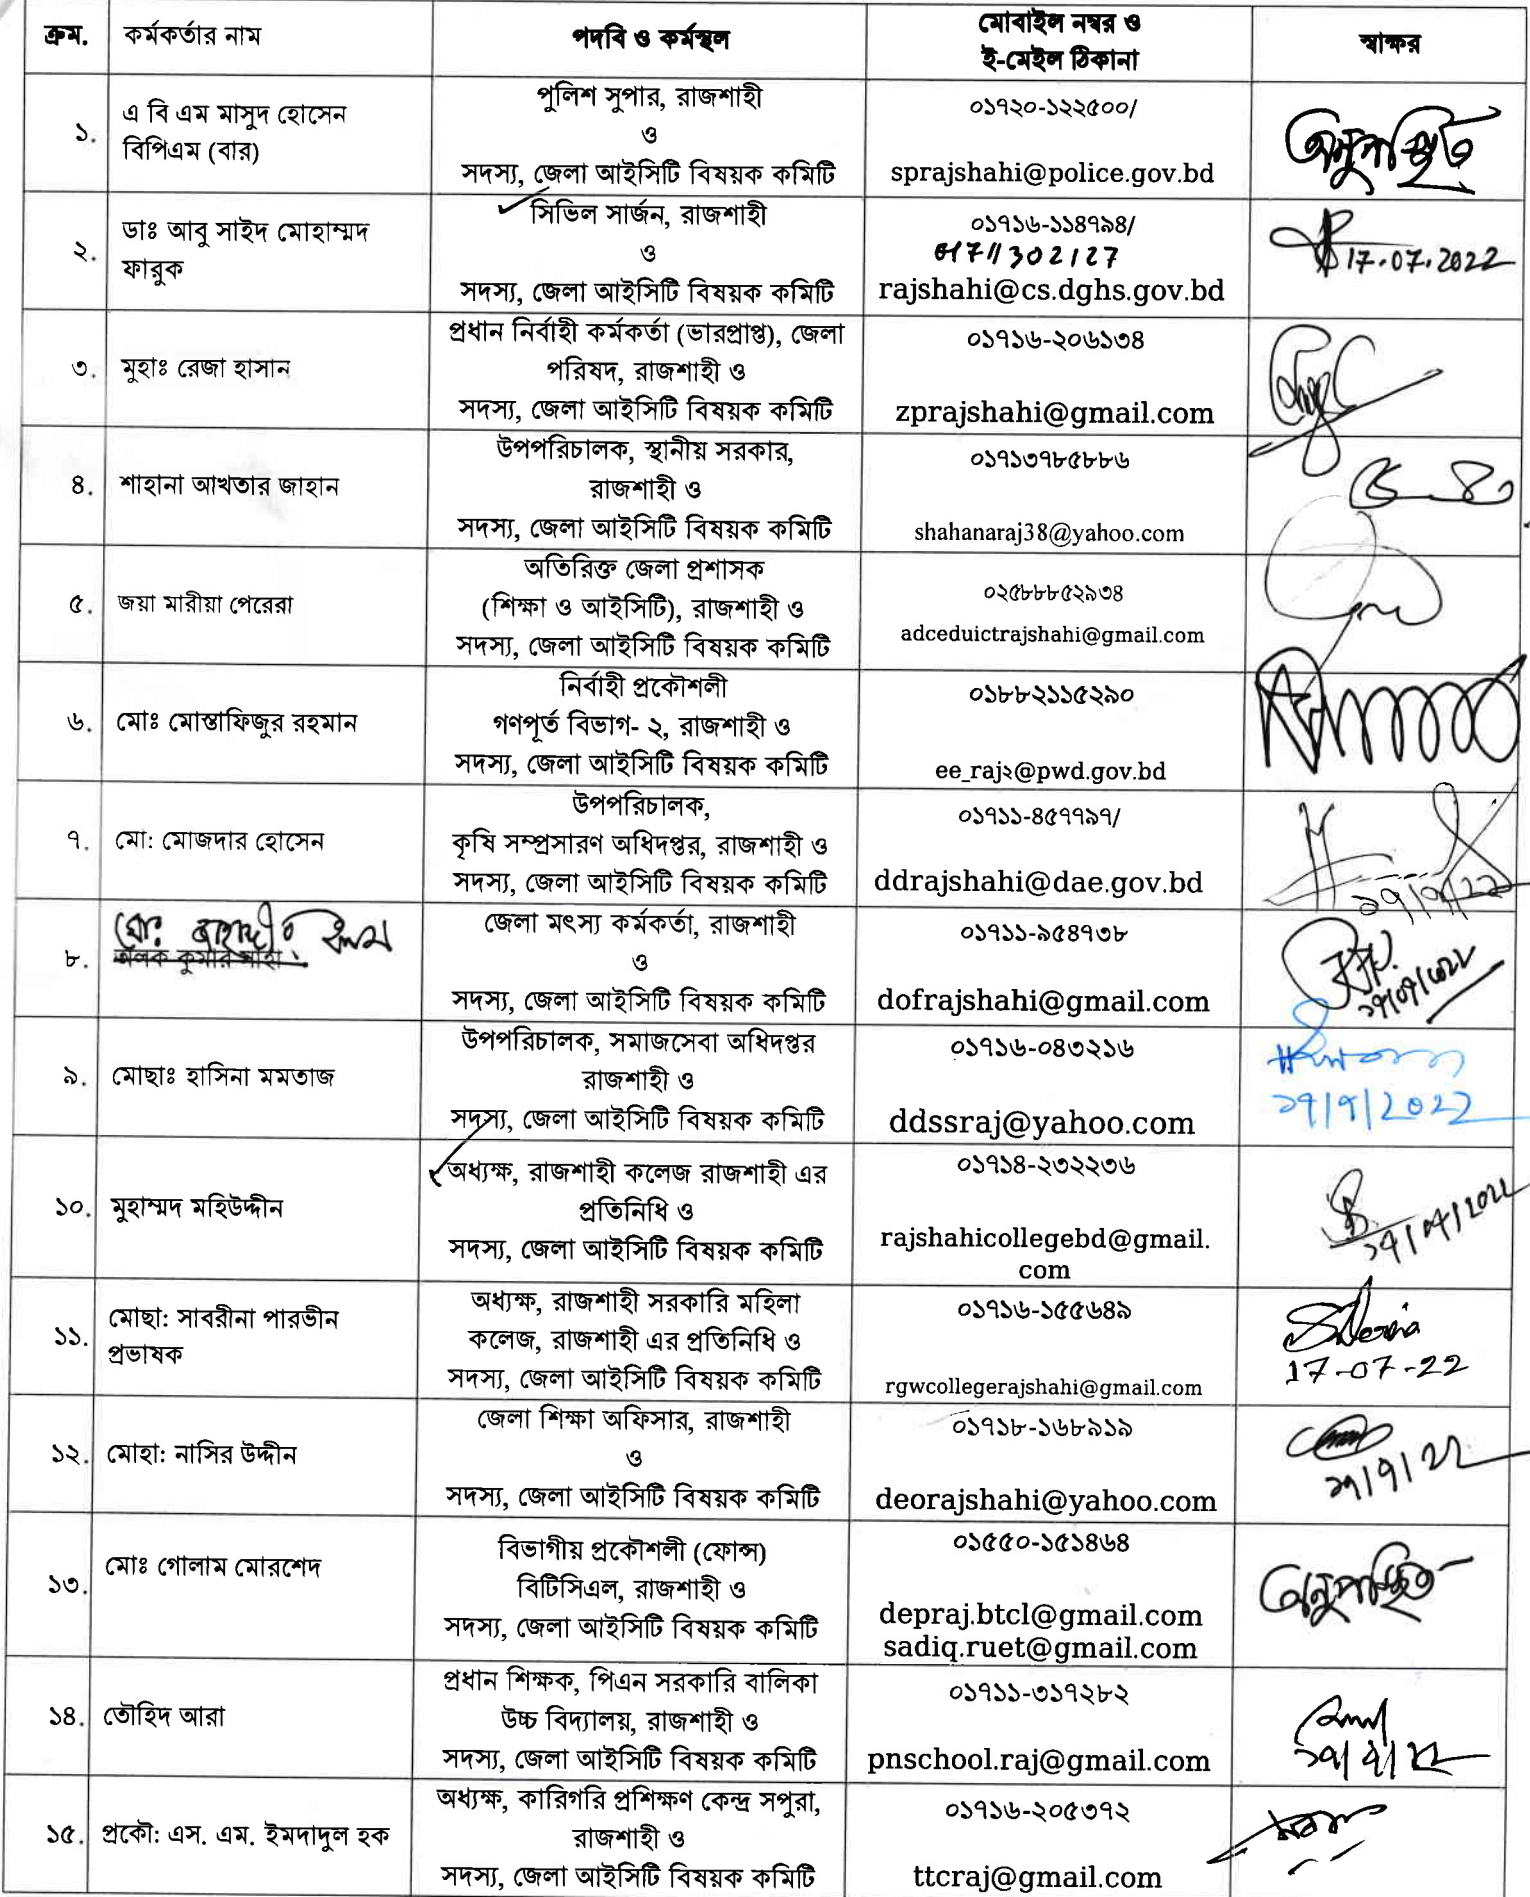 ক্রম.
কর্মকর্তার নাম
পদবি ও কর্মস্থল
মোবাইল নম্বর ও
ই-মেইল ঠিকানা
স্বাক্ষর
১.
এ বি এম মাসুদ হোসেন
বিপিএম (বার)
পুলিশ সুপার, রাজশাহী
ও
সদস্য, জেলা আইসিটি বিষয়ক কমিটি
০১৭২০-১২২৫০০/
sprajshahi@police.gov.bd
অনুপস্থিত
২.
ডাঃ আবু সাইদ মোহাম্মদ
ফারুক
সিভিল সার্জন, রাজশাহী
ও
সদস্য, জেলা আইসিটি বিষয়ক কমিটি
০১৭১৬-১১৪৭৯৪/
01711302127
rajshahi@cs.dghs.gov.bd
17.07.2022
৩.
মুহাঃ রেজা হাসান
প্রধান নির্বাহী কর্মকর্তা (ভারপ্রাপ্ত), জেলা
পরিষদ, রাজশাহী ও
সদস্য, জেলা আইসিটি বিষয়ক কমিটি
০১৭১৬-২০৬১৩৪
zprajshahi@gmail.com
৪.
শাহানা আখতার জাহান
উপপরিচালক, স্থানীয় সরকার,
রাজশাহী ও
সদস্য, জেলা আইসিটি বিষয়ক কমিটি
০১৭১৩৭৮৫৮৮৬
shahanaraj38@yahoo.com
৫.
জয়া মারীয়া পেরেরা
অতিরিক্ত জেলা প্রশাসক
(শিক্ষা ও আইসিটি), রাজশাহী ও
সদস্য, জেলা আইসিটি বিষয়ক কমিটি
০২৫৮৮৮৫২৯৩৪
adceduictrajshahi@gmail.com
৬.
মোঃ মোস্তাফিজুর রহমান
নির্বাহী প্রকৌশলী
গণপূর্ত বিভাগ- ২, রাজশাহী ও
সদস্য, জেলা আইসিটি বিষয়ক কমিটি
০১৮৮২১১৫২৯০
ee_raj২@pwd.gov.bd
৭.
মো: মোজদার হোসেন
উপপরিচালক,
কৃষি সম্প্রসারণ অধিদপ্তর, রাজশাহী ও
সদস্য, জেলা আইসিটি বিষয়ক কমিটি
০১৭১১-৪৫৭৭৯৭/
ddrajshahi@dae.gov.bd
১৭/৭/২২
৮.
অলক কুমার সাহা
জেলা মৎস্য কর্মকর্তা, রাজশাহী
ও
সদস্য, জেলা আইসিটি বিষয়ক কমিটি
০১৭১১-৯৫৪৭৩৮
dofrajshahi@gmail.com
৯.
মোছাঃ হাসিনা মমতাজ
উপপরিচালক, সমাজসেবা অধিদপ্তর
রাজশাহী ও
সদস্য, জেলা আইসিটি বিষয়ক কমিটি
০১৭১৬-০৪৩২১৬
ddssraj@yahoo.com
১৭/৭/২০২২
১০.
মুহাম্মদ মহিউদ্দীন
অধ্যক্ষ, রাজশাহী কলেজ রাজশাহী এর
প্রতিনিধি ও
সদস্য, জেলা আইসিটি বিষয়ক কমিটি
০১৭১৪-২৩২২৩৬
rajshahicollegebd@gmail.
com
১৭/০৭/২০২২
১১.
মোছা: সাবরীনা পারভীন
প্রভাষক
অধ্যক্ষ, রাজশাহী সরকারি মহিলা
কলেজ, রাজশাহী এর প্রতিনিধি ও
সদস্য, জেলা আইসিটি বিষয়ক কমিটি
০১৭১৬-১৫৫৬৪৯
rgwcollegerajshahi@gmail.com
17-07-22
১২.
মোহা: নাসির উদ্দীন
জেলা শিক্ষা অফিসার, রাজশাহী
ও
সদস্য, জেলা আইসিটি বিষয়ক কমিটি
০১৭১৮-১৬৮৯১৯
deorajshahi@yahoo.com
১৭/৭/২২
১৩.
মোঃ গোলাম মোরশেদ
বিভাগীয় প্রকৌশলী (ফোন্স)
বিটিসিএল, রাজশাহী ও
সদস্য, জেলা আইসিটি বিষয়ক কমিটি
০১৫৫০-১৫১৪৬৪
depraj.btcl@gmail.com
sadiq.ruet@gmail.com
অনুপস্থিত
১৪.
তৌহিদ আরা
প্রধান শিক্ষক, পিএন সরকারি বালিকা
উচ্চ বিদ্যালয়, রাজশাহী ও
সদস্য, জেলা আইসিটি বিষয়ক কমিটি
০১৭১১-৩১৭২৮২
pnschool.raj@gmail.com
১৭/৭/২২
১৫.
প্রকৌ: এস. এম. ইমদাদুল হক
অধ্যক্ষ, কারিগরি প্রশিক্ষণ কেন্দ্র সপুরা,
রাজশাহী ও
সদস্য, জেলা আইসিটি বিষয়ক কমিটি
০১৭১৬-২০৫৩৭২
ttcraj@gmail.com